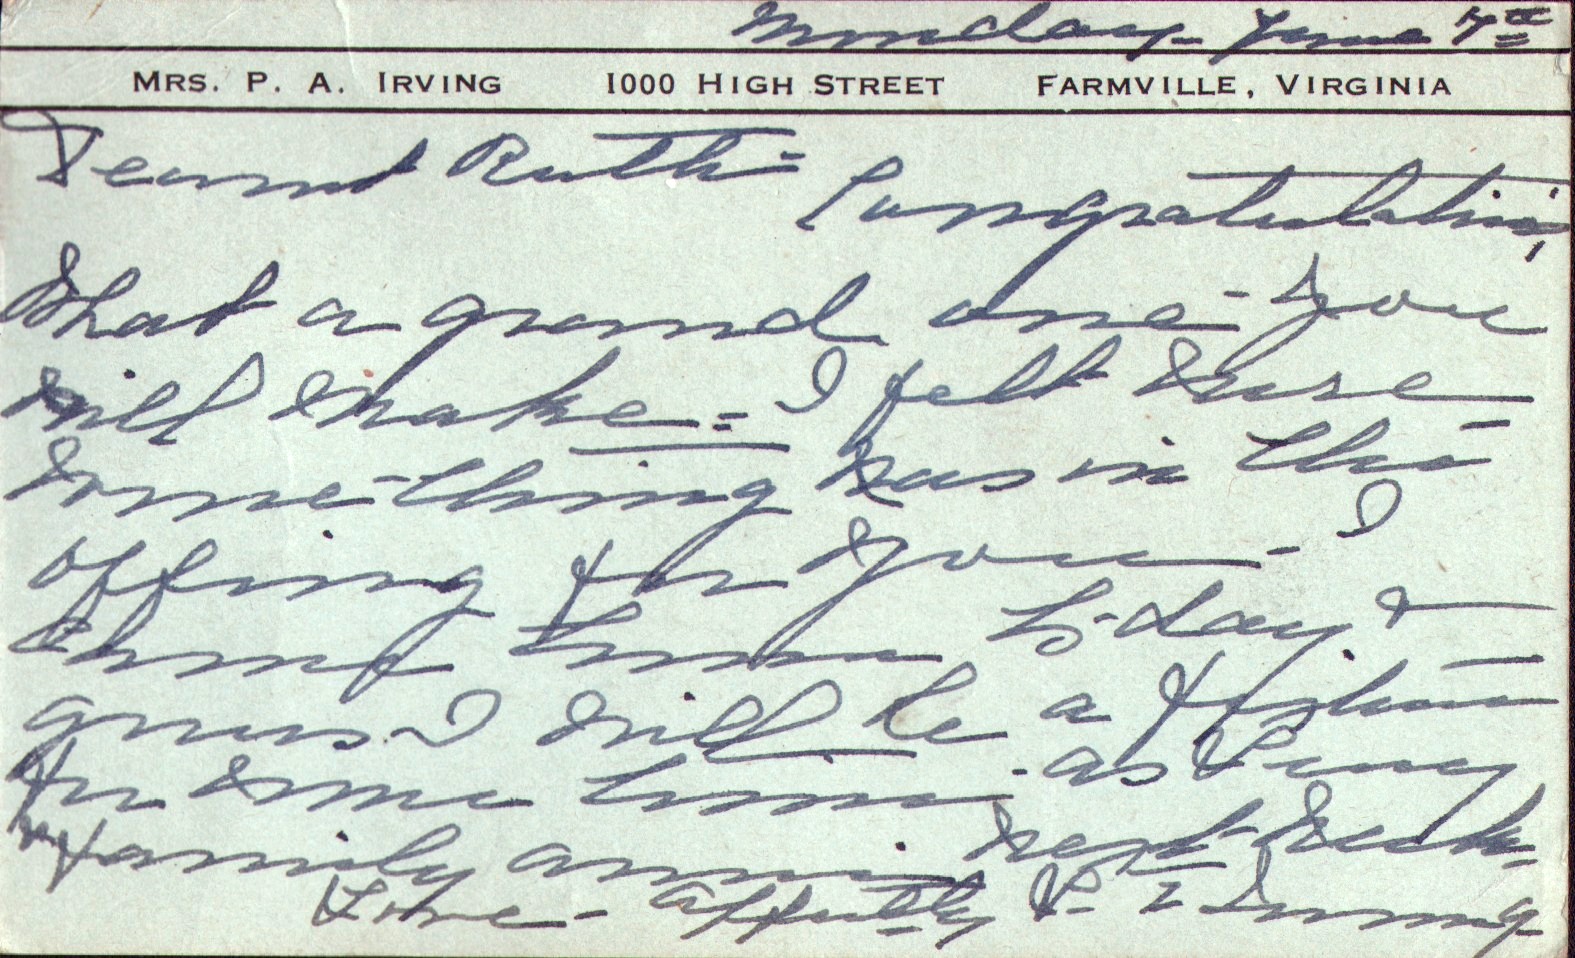 Monday - June 7th
MRS. P. A. IRVING 1000 HIGH STREET FARMVILLE, VIRGINIA
Dearest Ruth =
Congratulations,
What a grand one - You
will make = I felt sure -
Something was in the
offing for you - I
came home to-day &
guess I will be a fixture
for some time - as Percy
& family arrive next week.
Love - Affectly P. Irving